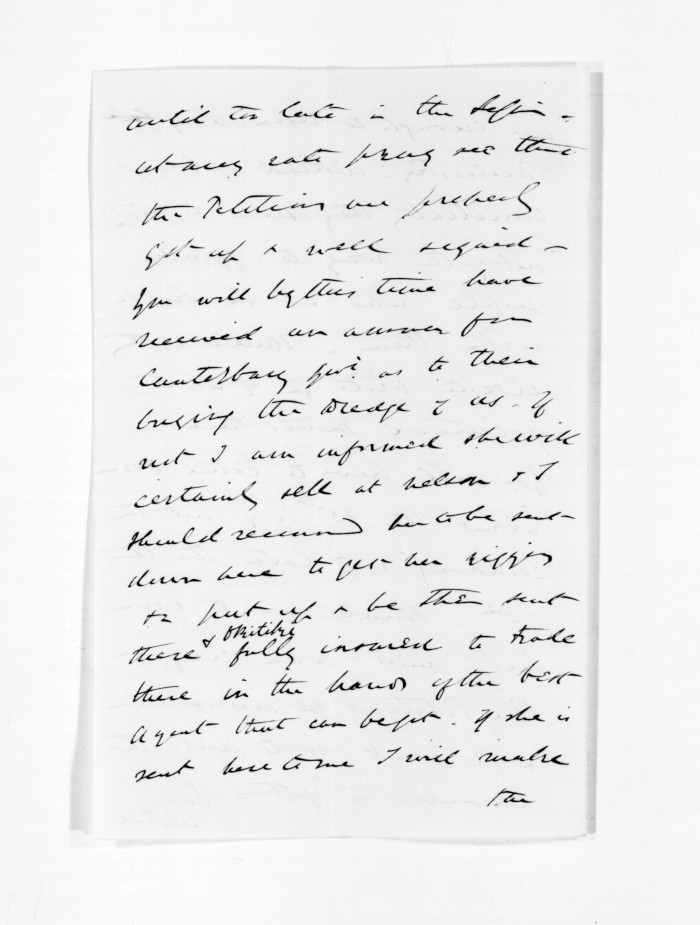 until too late in the Session -
at any rate pray see that
the Petitions are properly
got up & well signed -
You will by this time have
received an answer from
Canterbury Govt as to their
buying the Dredge of us. If
not I am informed she will
certainly sell at Nelson & I
should recommend her to be sent
down here to get her rigging
&c put up & be then sent
there & Okitiki fully insured to trade
there in the hands of the best
Agent that can be got. If she is
sent here to me I will make
the